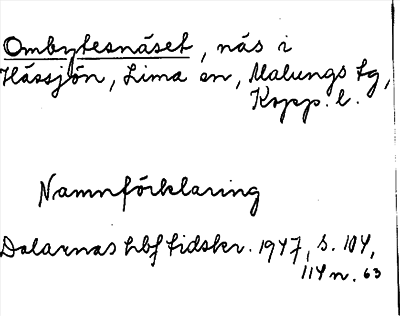 Ombytesnäset, näs i
Hässjön, Lima sn, Malungs tg,
Kopp. l.
Namnförklaring
Dalarnas hbf tidskr. 1947, s. 104,
114 n. 63